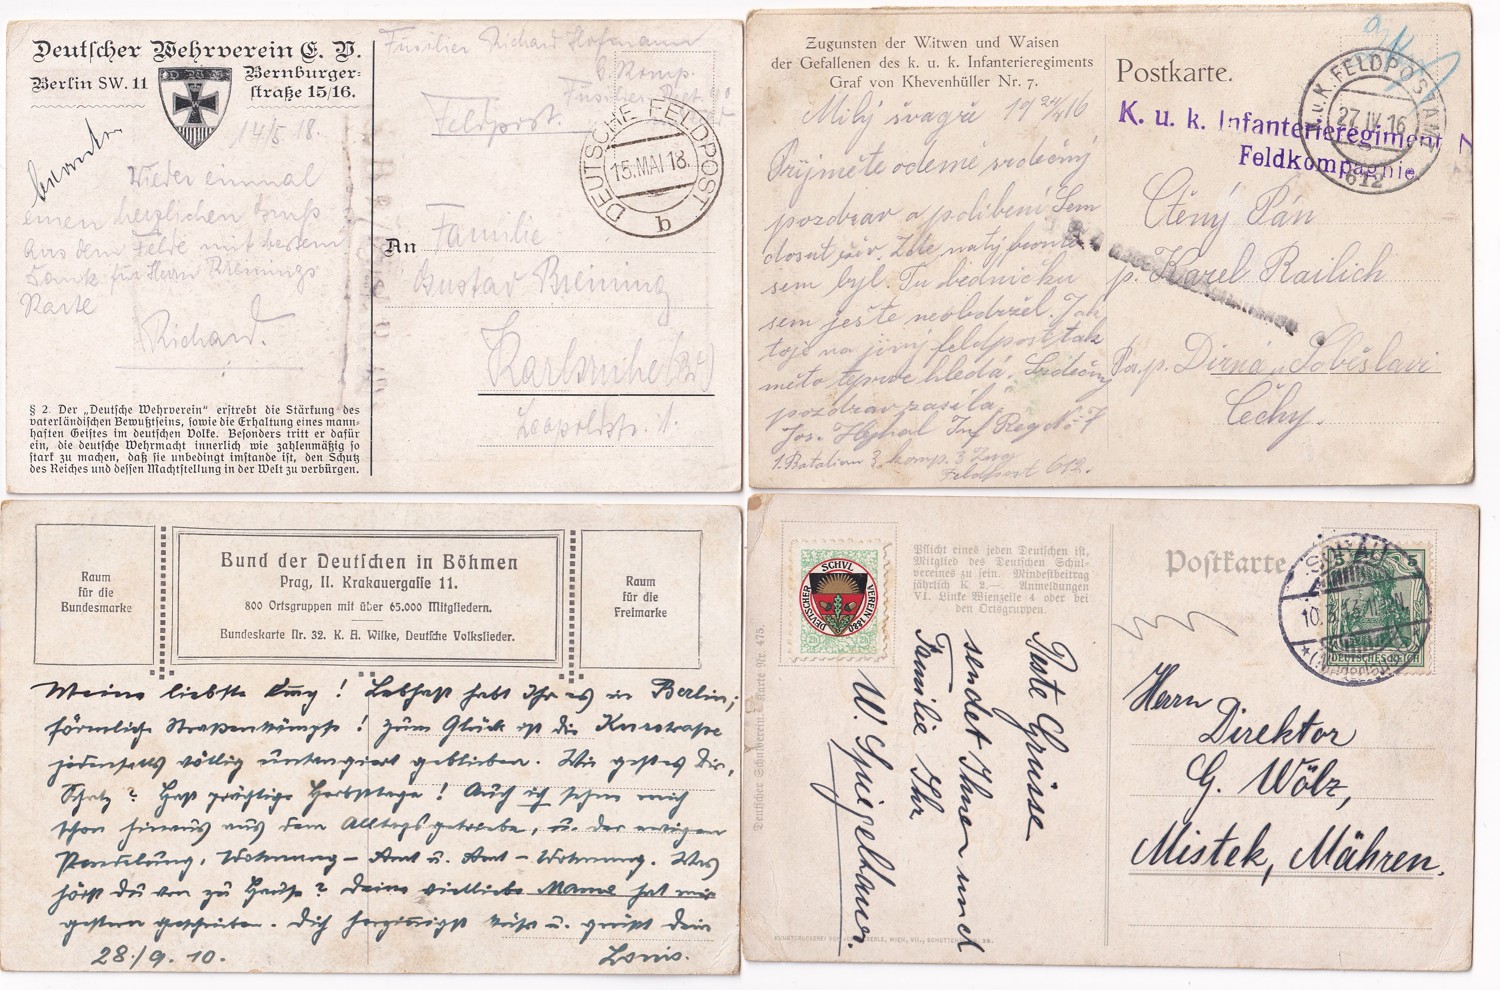 Deutscher Wehrverein E. V.
Berlin SW. 11
Bernburger-
straße 15/16.
Füsilier Richard Hofmann
Komp.
Feldpost.
DEUTSCHE FELDPOST
15. MAI 18.
b
14/5 18.
Wieder einmal
einen herzlichen Gruß
aus dem Felde mit bestem
Dank für Herrn Breinings
Karte
Richard.
An
Familie
Gustav Breining
Karlsruhe
Leopoldstr.
§ 2. Der „Deutsche Wehrverein“ erstrebt die Stärkung des
vaterländischen Bewußtseins, sowie die Erhaltung eines mann-
haften Geistes im deutschen Volke. Besonders tritt er dafür
ein, die deutsche Wehrmacht innerlich wie zahlenmäßig so
stark zu machen, daß sie unbedingt imstande ist, den Schutz
des Reiches und dessen Machtstellung in der Welt zu verbürgen.
Zugunsten der Witwen und Waisen
der Gefallenen des k. u. k. Infanterieregiments
Graf von Khevenhüller Nr. 7.
Postkarte.
K. u. k. FELDPOSTAMT
27. IV. 16
612
K. u. k. Infanterieregiment
Feldkompagnie
Milý švagře
Přijměte odemě srdečný
pozdrav a políbení
dosut živ.
sem byl. Tu bedničku
sem ještě neobdržel.
toje na jiný feldpost tak
měto teprve hledá. Srdečný
pozdrav zasílá
Jos. Inf Reg No 7
1. Batalion 3. komp. 3 Zug
Feldpost 612.
Ctěný Pán
p. Karel Railich
Dirná Soběslavi
Čechy.
Raum
für die
Bundesmarke
Bund der Deutschen in Böhmen
Prag, II. Krakauergasse 11.
800 Ortsgruppen mit über 65.000 Mitgliedern.
Bundeskarte Nr. 32. K. A. Wilke, Deutsche Volkslieder.
Raum
für die
Freimarke
Meine liebste ! Lebhaft habt Ihr es in Berlin;
förmliche Straßenkämpfe! Zum Glück ist die Kurstraße
jedenfalls völlig untangiert geblieben. Wie geht es Dir,
Schatz? Habt prächtige Herbsttage! Auch ich sehne mich
schon hinaus aus dem Alltagsgetriebe, u. der ewigen
Pendelung, Wohnung – Amt u. Amt – Wohnung. Was
hörst du von zu Hause? Deine vielliebe Mama hat mir
gestern geschrieben. Dich herzinnigst küßt u. grüßt Dein
28./9. 10.
Louis.
DEUTSCHER SCHVLVEREIN 1880
Pflicht eines jeden Deutschen ist,
Mitglied des Deutschen Schul-
vereines zu sein. Mindestbeitrag
jährlich K 2.— Anmeldungen
VI. Linke Wienzeile 4 oder bei
den Ortsgruppen.
Postkarte
SORAU
10. 3.
5
DEUTSCHES REICH
Deutscher Schulverein Karte Nr. 475.
Beste Grüsse
sendet Ihnen und
Familie Ihr
W. Spiegelhauer.
Herrn
Direktor
G. Wölz,
Mistek, Mähren.